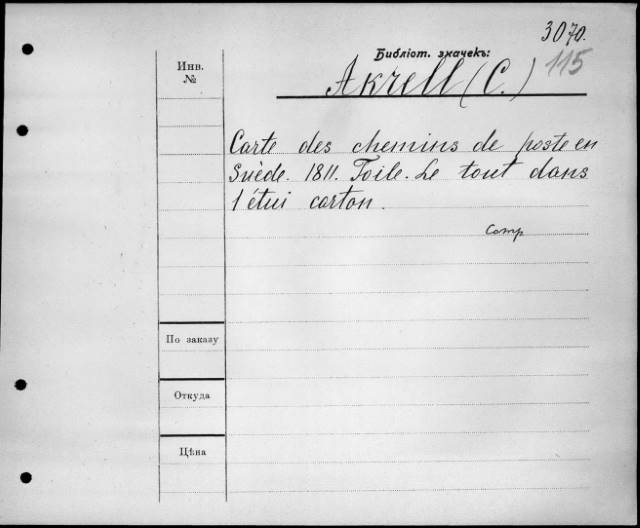 3070.
Библіот. значекъ:
115
Akrell (C.)
Инв.
№
Carte des chemins de poste en
Suède. 1811. Toile. Le tout dans
l'étui carton.
Comp
По заказу
Откуда
Цѣна